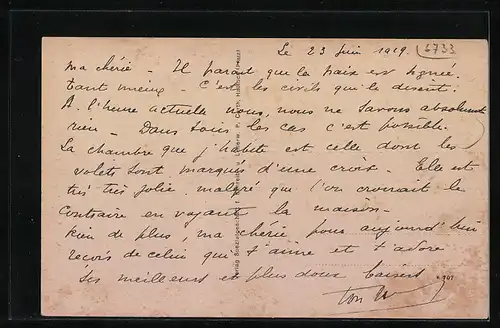 Le 23 Juin 1919. 6733
ma chérie - Il parait que la paix est signée.
tant mieux - C'est les civils qui le disent.
A l'heure actuelle nous, nous ne savons absolument
rien - Dans tous les cas c'est possible.
La chambre que j'habite est celle dont les
volets sont marqués d'une croix. Elle est
très très jolie malgré que l'on croirait le
contraire en voyant la maison.
Rien de plus, ma chérie pour aujourd'hui
reçois de celui qui t'aime et t'adore
Ses meilleurs et plus doux baisers
ton